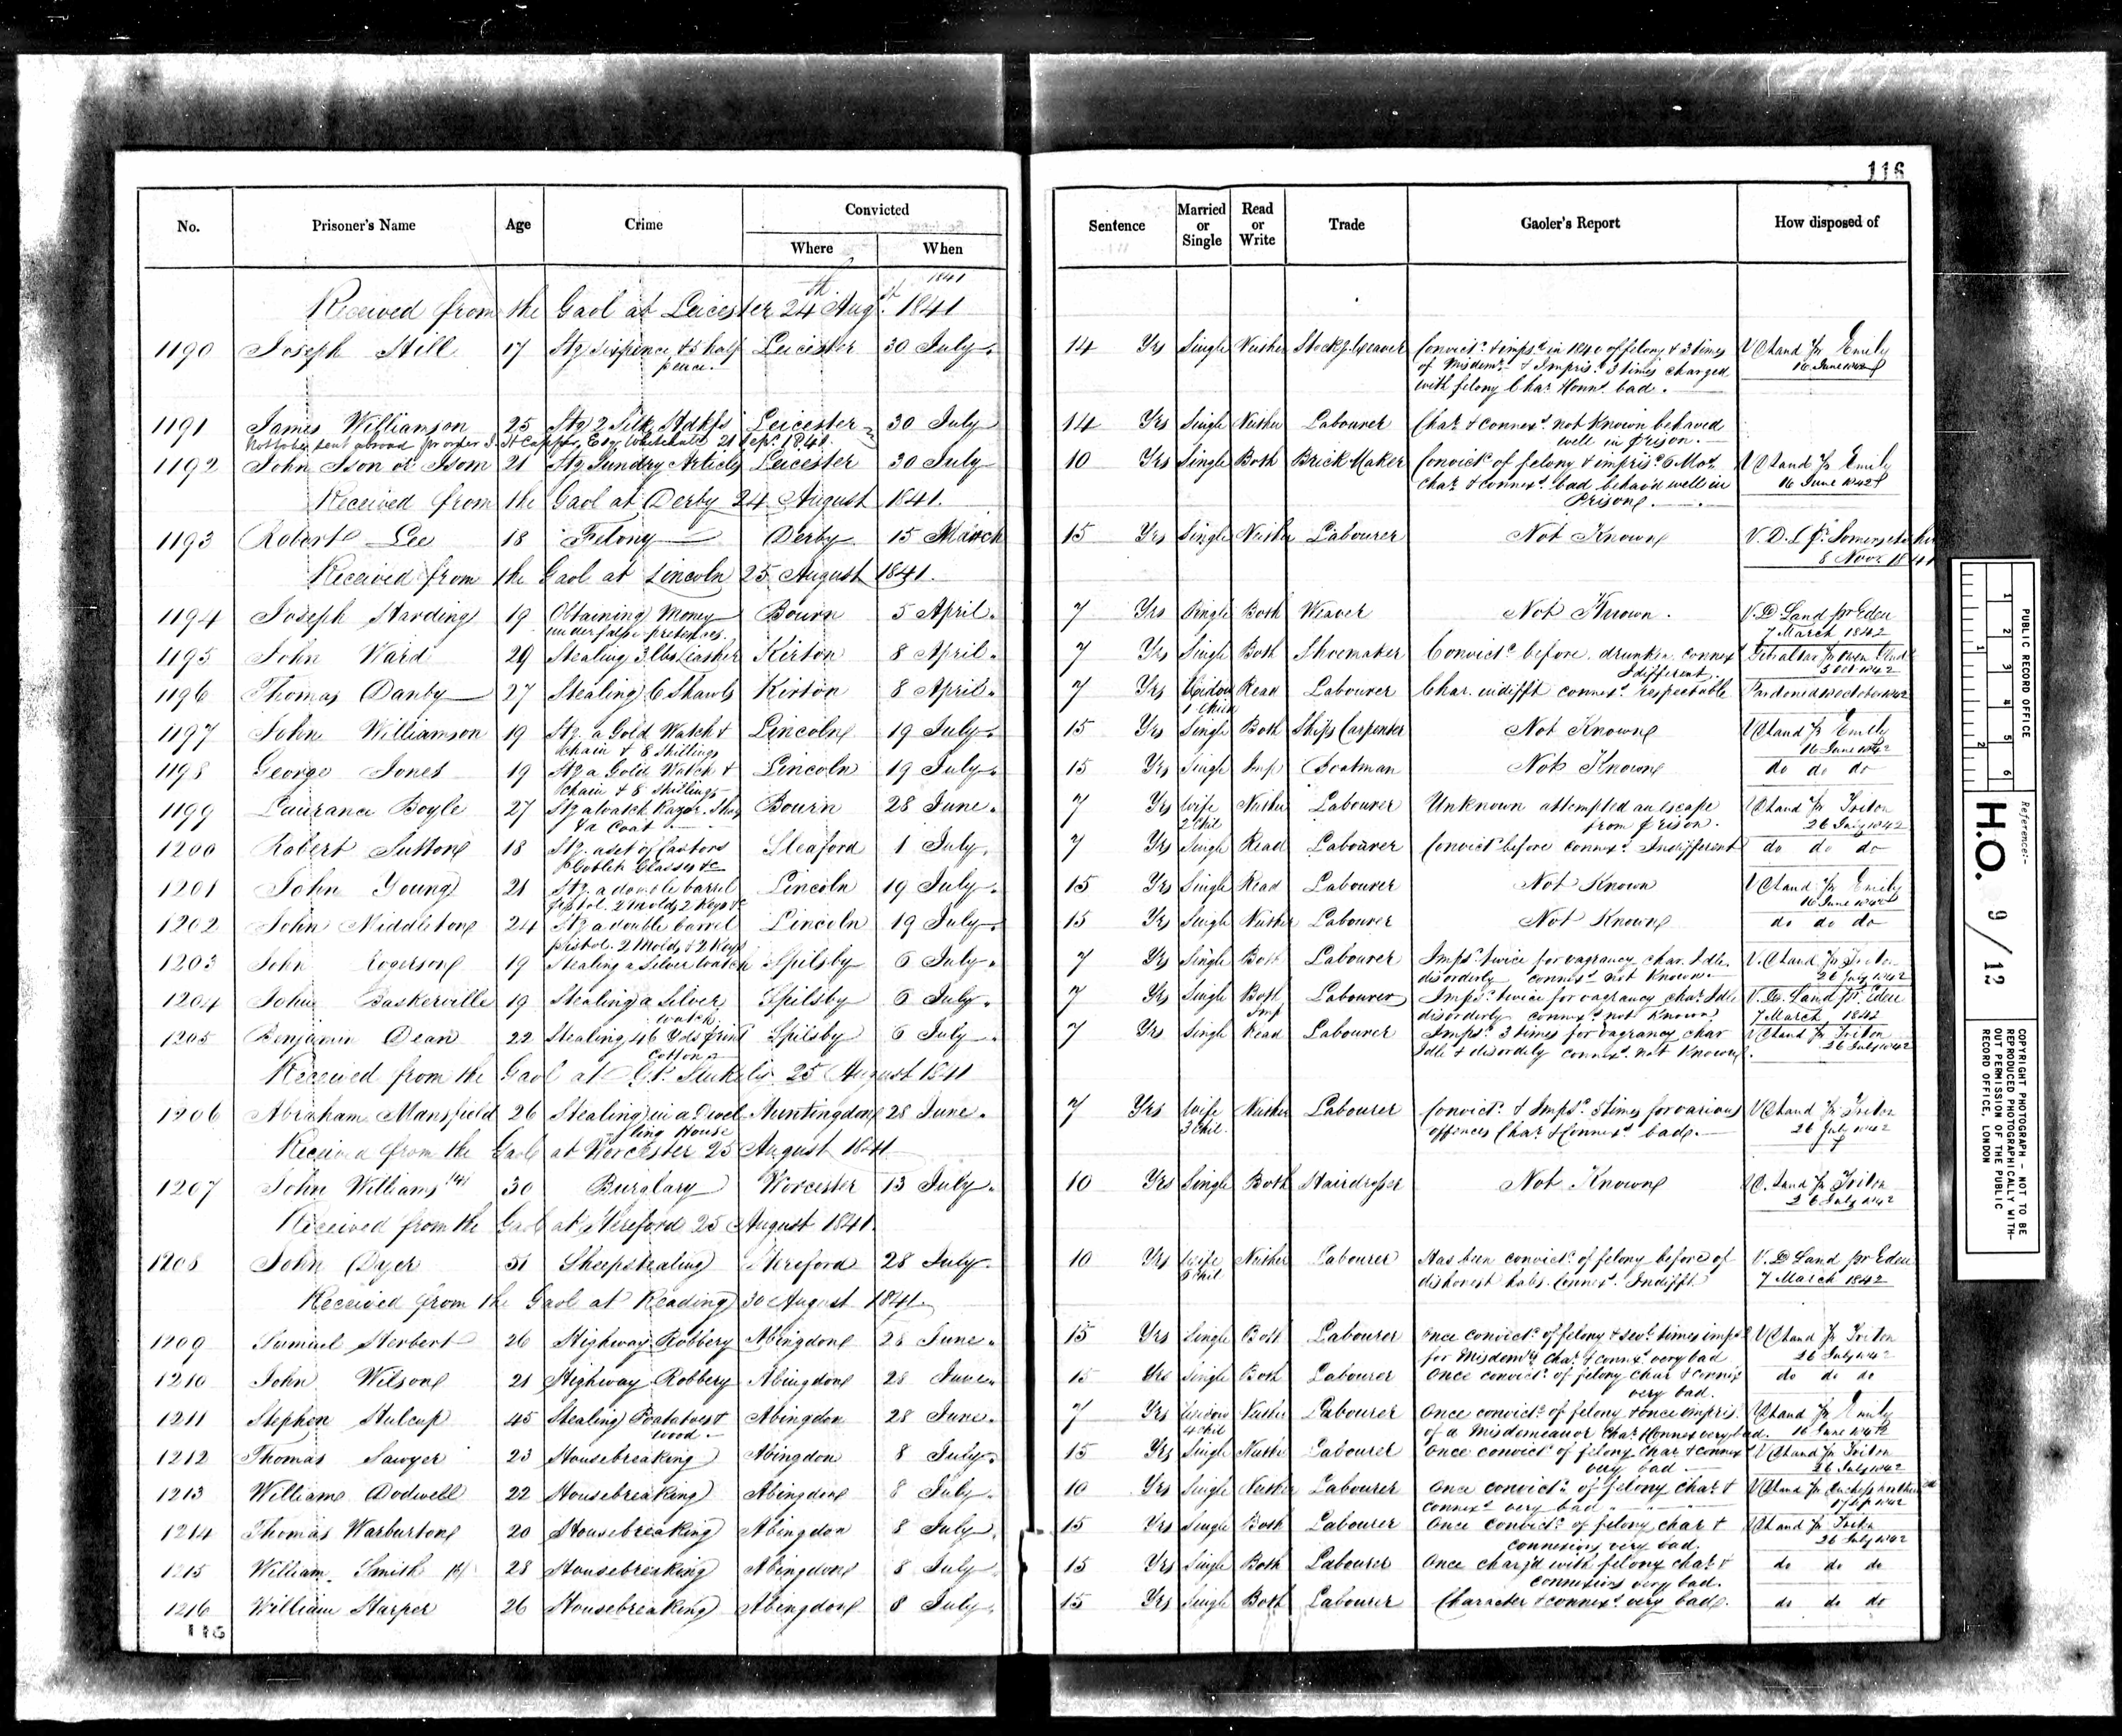 116
No. Prisoner's Name Age Crime Convicted Sentence Married or Single Read or Write Trade Gaoler's Report How disposed of
Where When
1841
Received from the Gaol at Leicester 24th Augst 1841
1190 Joseph Hill 17 Stg Sixpence & 3 half Leicester 30 July 14 Yrs Single Neither Stockg. Weaver Convictd. & impsd in 1840 of felony & 3 times V D Land pr Emily
pence of Misdemr. & Impris. 3 times charged 16 June 1842
with felony Char. & Connxs. bad.
1191 James Williamson 25 Stg 2 Silk Hdkfs Leicester 30 July 14 Yrs Single Neither Labourer Char. & Connexs. not known behaved
Not to be sent abroad pr order Esq Whitehall 21 Sepr. 1841 well in Prison.
1192 John Ison or Isom 21 Stg Sundry Articles Leicester 30 July 10 Yrs Single Both Brick Maker Convictd of felony & imprisd. 6 Mos. V D Land pr Emily
Char. & connexs. bad behav'd well in 16 June 1842
Prison.
Received from the Gaol at Derby 24 August 1841.
1193 Robert Lee 18 Felony Derby 15 March 15 Yrs Single Neither Labourer Not Known V. D. L pr. Somersetshire
8 Novr. 1841
Received from the Gaol at Lincoln 25 August 1841.
1194 Joseph Harding 19 Obtaining Money Bourn 5 April 7 Yrs Single Both Weaver Not Known. V. D Land pr Eden
under false pretences. 7 March 1842
1195 John Ward 29 Stealing 3 lbs Leather Kirton 8 April 7 Yrs Single Both Shoemaker Convictd. before. drunkn. connexs Gibraltar pr Owen Glend
Indifferent 5 Oct 1842
1196 Thomas Danby 27 Stealing 6 Shawls Kirton 8 April 7 Yrs Widow Read Labourer Char. indifft connexs. respectable Pardoned October 1842
1 Child
1197 John Williamson 19 Stg. a Gold Watch & Lincoln 19 July 15 Yrs Single Both Ships Carpenter Not Known V D Land pr Emily
chain & 8 Shillings 16 June 1842
1198 George Jones 19 Stg a Gold Watch & Lincoln 19 July 15 Yrs Single Imp Boatman Not Known do do do
chain & 8 Shillings
1199 Laurance Boyle 27 Stg a Watch Razor. Bourn 28 June 7 Yrs Wife Neither Labourer Unknown attempted an escape V D Land pr Triton
& a Coat 2 Chil from Prison. 26 July 1842
1200 Robert Sutton 18 Stg. a set of Castors Sleaford 1 July 7 Yrs Single Read Labourer Convictd before connexs. Indifferent do do do
Goblet Glasses &c
1201 John Young 21 Stg. a double barrel Lincoln 19 July 15 Yrs Single Read Labourer Not Known V D Land pr Emily
pistol. 2 Molds 2 Keys &c 16 June 1842
1202 John Middleton 24 Stg a double barrel Lincoln 19 July 15 Yrs Single Neither Labourer Not Known do do do
pistol. 2 Molds & 2 Keys
1203 John Rogerson 19 Stealing a Silver Watch Spilsby 6 July 7 Yrs Single Both Labourer Impsd. twice for vagrancy char. Idle. V. D Land pr Triton
disorderly connexs not Known 26 July 1842
1204 John Baskerville 19 Stealing a Silver Spilsby 6 July 7 Yrs Single Both Labourer Impsd. twice for vagrancy char. Idle V. D. Land pr Eden
watch. Imp disorderly connexs. not Known 7 March 1842
1205 Benjamin Dean 22 Stealing 46 Yds print Spilsby 6 July 7 Yrs Single Read Labourer Impsd. 3 times for vagrancy char V D Land pr Triton
Cotton Idle & disordely connexs. not Known. 26 July 1842
Received from the Gaol at Gt. Stukely 25 August 1841
1206 Abraham Mansfield 26 Stealing in a Dwel Huntingdon 28 June 7 Yrs Wife Neither Labourer Convictd. & Impsd. 5 times for various V D Land pr Triton
ling House 3 Chil. offences Char. & Connexs. bad. 26 July 1842
Received from the Gaol at Worcester 25 August 1841
1207 John Williams 30 Burglary Worcester 13 July 10 Yrs Single Both Hairdresser Not Known V D. Land pr Triton
26 July 1842
Received from the Gaol at Hereford 25 August 1841.
1208 John Dyer 51 Sheepstealing Hereford 28 July 10 Yrs Wife Neither Labourer Has been convictd. of felony before of V. D Land pr Eden
6 Chil dishonest habs. Connexs. Indifft. 7 March 1842
Received from the Gaol at Reading 30 August 1841.
1209 Samuel Herbert 26 Highway Robbery Abingdon 28 June 15 Yrs Single Both Labourer Once convictd. of felony & sevl. times impsd V D Land pr Triton
for Misdemrs. Char. & connexs. very bad 26 July 1842
1210 John Wilson 21 Highway Robbery Abingdon 28 June 15 Yrs Single Both Labourer Once convictd. of felony char & connexs do do do
very bad.
1211 Stephen Hulcup 45 Stealing Poatatoes & Abingdon 28 June 7 Yrs Widow Neither Labourer Once convictd. of felony & once impris. V D Land pr Emily
wood 4 Chil of a Misdemeanor Char. & Connexs very bad. 16 June 1842
1212 Thomas Sawyer 23 Housebreaking Abingdon 8 July 15 Yrs Single Neither Labourer Once convictd. of felony Char & connexs V D Land pr Triton
very bad 26 July 1842
1213 William Dodwell 22 Housebreaking Abingdon 8 July 10 Yrs Single Neither Labourer Once convictd. of felony char. & V D Land pr Duchess Northumd
connexs. very bad 1842
1214 Thomas Warburton 20 Housebreaking Abingdon 8 July 15 Yrs Single Both Labourer Once convictd. of felony char & V D Land pr Triton
connexions very bad. 26 July 1842
1215 William Smith 28 Housebreaking Abingdon 8 July 15 Yrs Single Both Labourer Once charg'd with felony char. & do do do
connexions very bad.
1216 William Harper 26 Housebreaking Abingdon 8 July 15 Yrs Single Both Labourer Character & connexs. very bad. do do do
116
PUBLIC RECORD OFFICE
Reference:-
H.O. 9/12
COPYRIGHT PHOTOGRAPH - NOT TO BE
REPRODUCED PHOTOGRAPHICALLY WITH-
OUT PERMISSION OF THE PUBLIC
RECORD OFFICE, LONDON